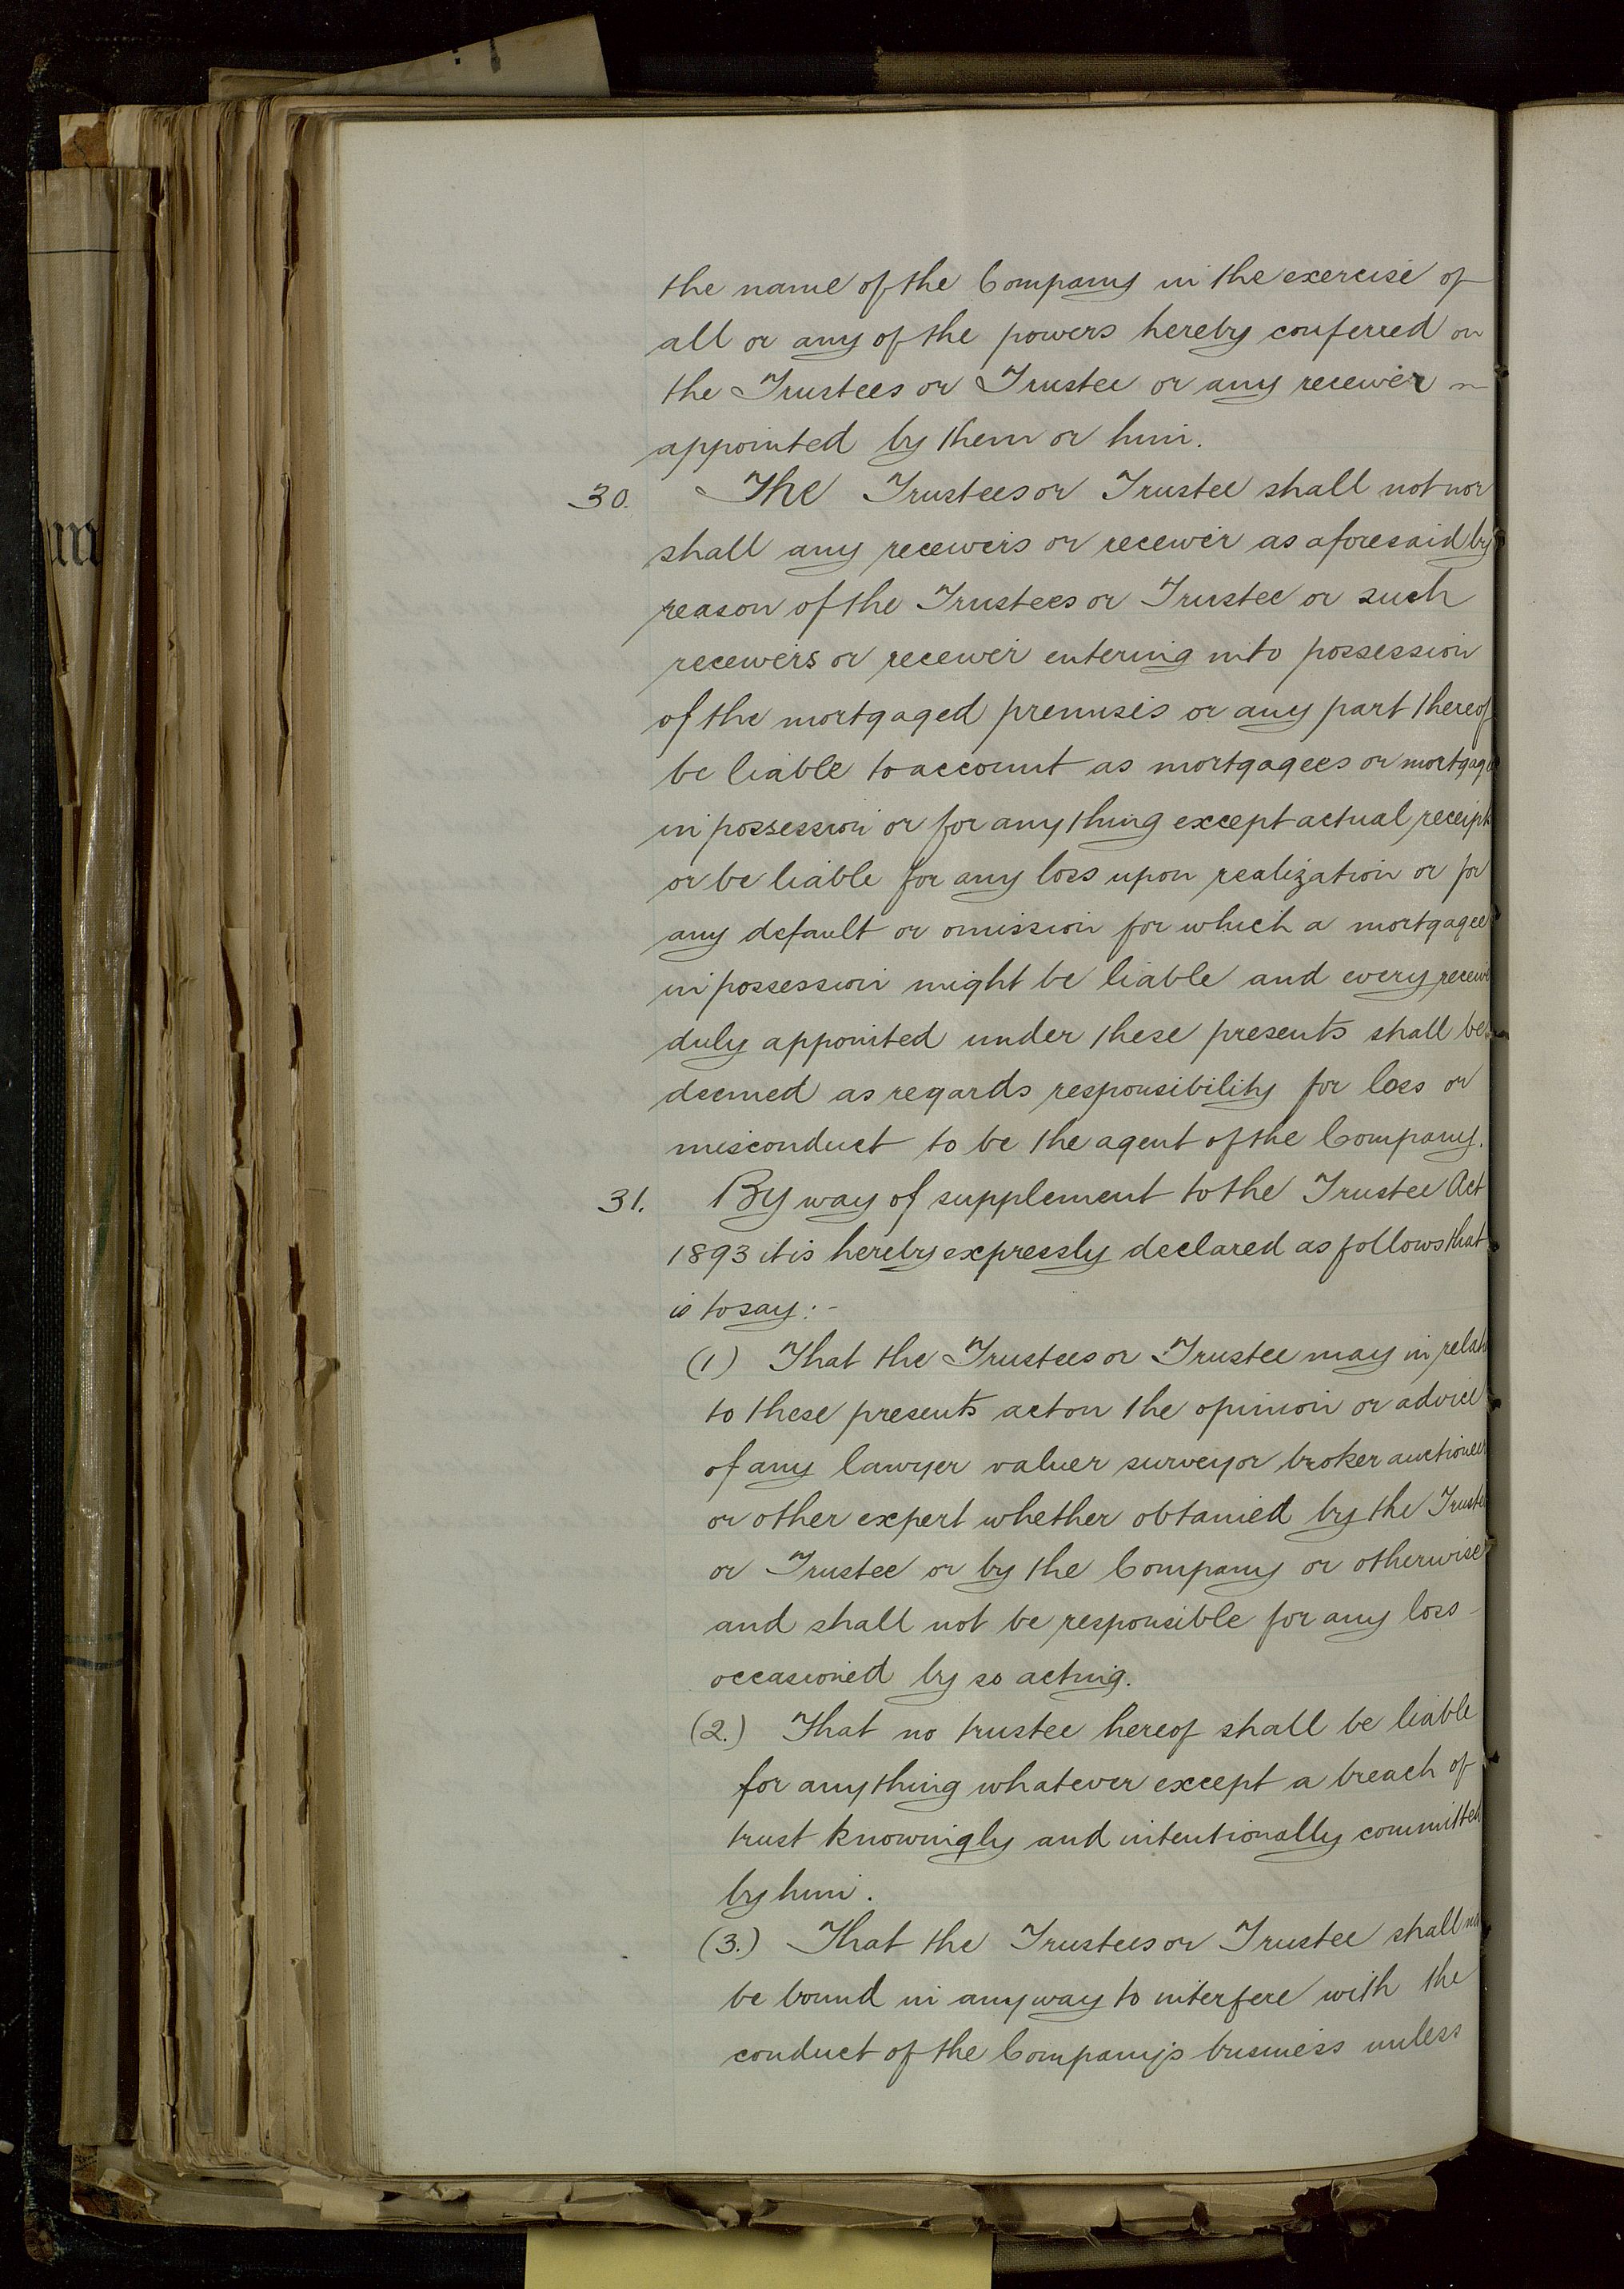 the name of the Company in the exercise of
all or any of the powers hereby conferred on
the Trustees or Trustee or any receiver
appointed by them or him.
30. The Trustees or Trustee shall not nor
shall any receivers or receiver as aforesaid by
reason of the Trustees or Trustee or such
receivers or receiver entering into possession
of the mortgaged premises or any part thereof
be liable to account as mortgagees or mortgage
in possession or for anything except actual receipts
or be liable for any loss upon realization or for
any default or omission for which a mortgagee
in possession might be liable and every receiv
duly appointed under these presents shall be
deemed as regards responsibility for loss or
misconduct to be the agent of the Company.
31. By way of supplement to the Trustee Act
1893 it is hereby expressly declared as follows that
is to say:-
(1) That the Trustees or Trustee may in relat
to these presents act on the opinion or advice
of any lawyer valuer surveyor broker auctioneer
or other expert whether obtained by the Truste
or Trustee or by the Company or otherwise
and shall not be responsible for any loss
occasioned by so acting.
(2.) That no trustee hereof shall be liable
for anything whatever except a breach of
trust knowingly and intentionally committed
by him.
(3.) That the Trustees or Trustee shall no
be bound in anyway to interfere with the
conduct of the Company's business unless